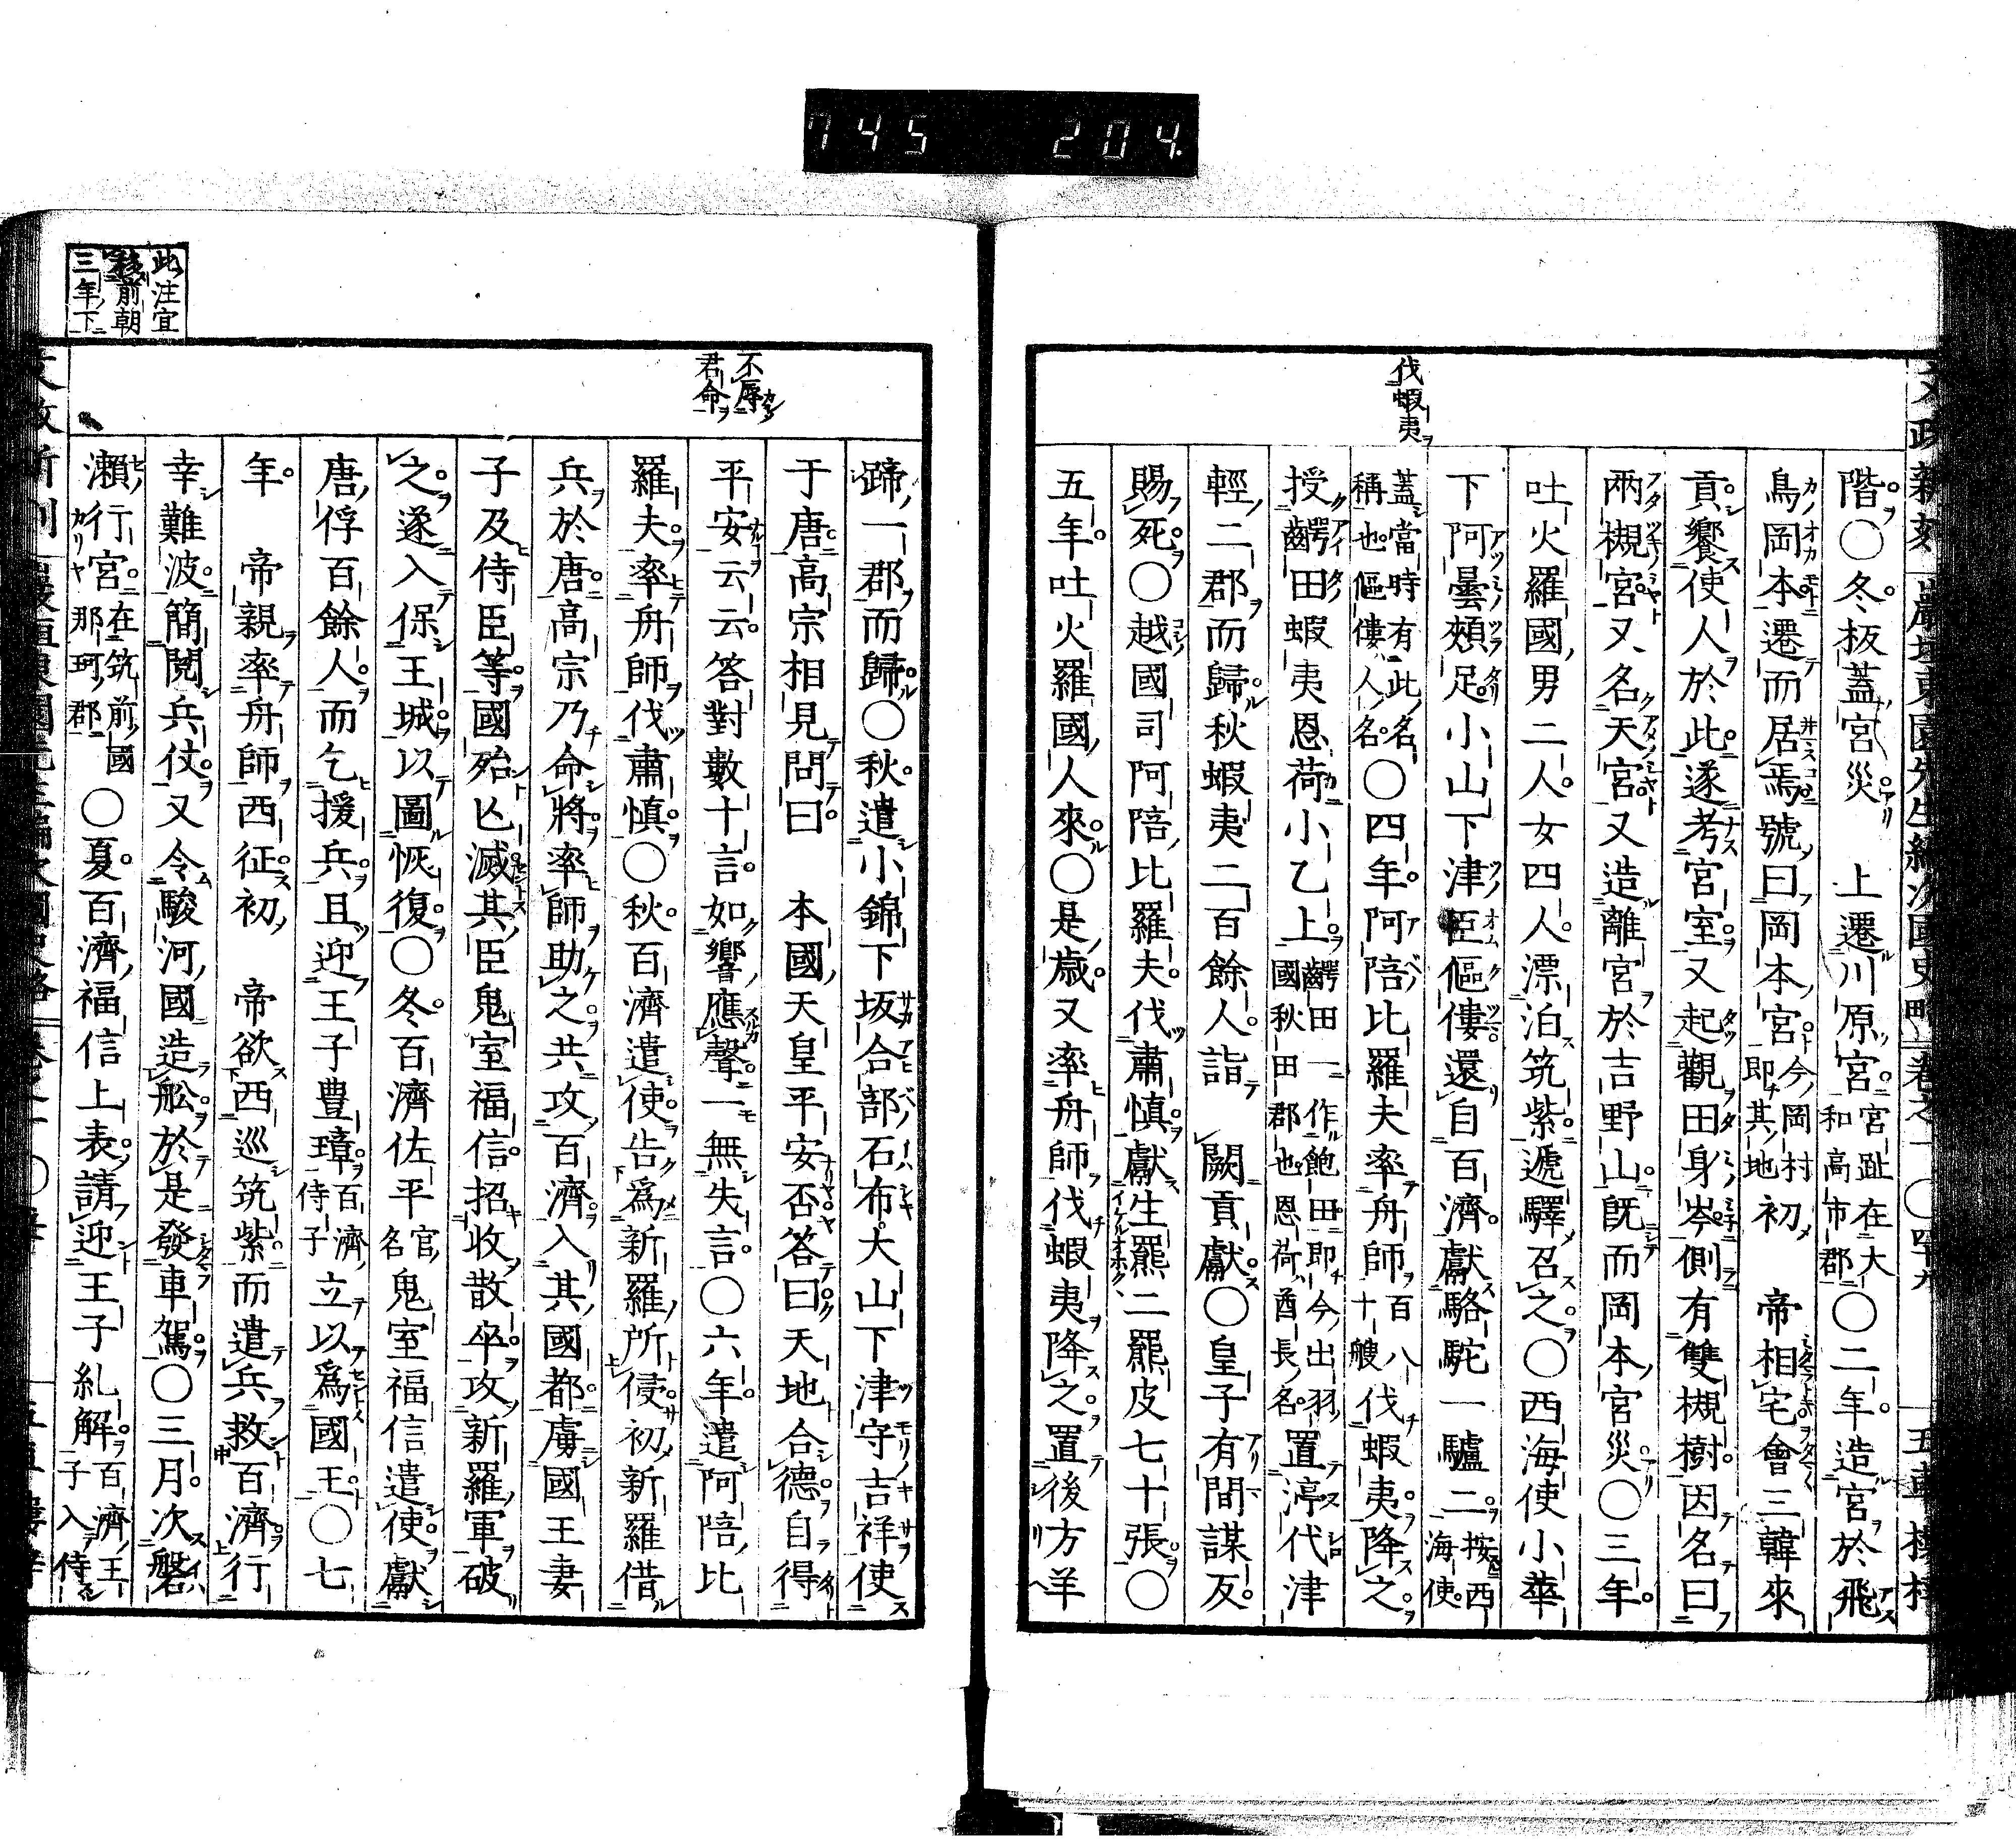 745 204.
伐蝦夷
階○冬板蓋宮災 上遷川原宮宮趾在大和高市郡○二年造宮於飛
鳥岡本遷而居焉號曰岡本宮今岡村即其地初 帝相宅會三韓來
貢饗使人於此遂考宮室又起觀田身岺側有雙槻樹因名曰
兩槻宮又名天宮又造離宮於吉野山既而岡本宮災○三年
吐火羅國男二人女四人漂泊筑紫遞驛召之○西海使小華
下阿曇頰足小山下津臣傴僂還自百濟獻駱駝一驢二按西海使
蓋當時有此名稱也傴僂人名○四年阿陪比羅夫率舟師百八十艘伐蝦夷降之
授齶田蝦夷恩荷小乙上齶田一作飽田即今出羽國秋田郡也恩荷酋長名置渟代津
輕二郡而歸秋蝦夷二百餘人詣 闕貢獻○皇子有間謀反
賜死○越國司阿陪比羅夫伐肅慎獻生羆二羆皮七十張○
五年吐火羅國人來○是歳又率舟師伐蝦夷降之置後方羊
不辱君命
蹄一郡而歸○秋遣小錦下坂合部石布大山下津守吉祥使
于唐高宗相見問曰 本國天皇平安否答曰天地合德自得
平安云云答對數十言如響應聲一無失言○六年遣阿陪比
羅夫率舟師伐肅慎○秋百濟遣使告爲新羅所侵初新羅借
兵於唐高宗乃命將率師助之共攻百濟入其國都虜國王妻
子及侍臣等國殆亾滅其臣鬼室福信招收散卒攻新羅軍破
之遂入保王城以圖恢復○冬百濟佐平官名鬼室福信遣使獻
唐俘百餘人而乞援兵且迎王子豊璋百濟侍子立以爲國王○七
年 帝親率舟師西征初 帝欲西巡筑紫而遣兵救百濟行
幸難波簡閲兵仗又令駿河國造舩於是發車駕○三月次磐
瀨行宮在筑前國那珂郡○夏百濟福信上表請迎王子糺解百濟王子入侍
此注宜移前朝三年下